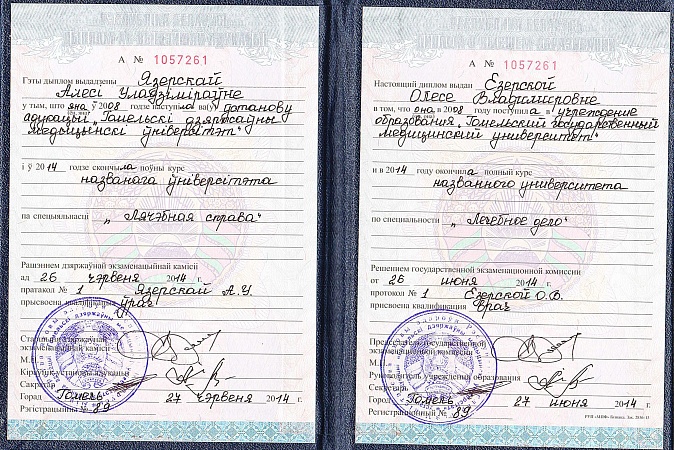 А № 1057261
Гэты дыплом выдадзены Язерскай
Алесі Уладзіміраўне
у тым, што яна ў 2008 годзе паступіла ва(ў) установу
адукацыі „Гомельскі дзяржаўны
медыцынскі ўніверсітэт“
і ў 2014 годзе скончыла поўны курс
названага ўніверсітэта
па спецыяльнасці „Лячэбная справа“
Рашэннем дзяржаўнай экзаменацыйнай камісіі
ад 26 чэрвеня 2014 г.
пратакол № 1 Язерскай А.У.
прысвоена кваліфікацыя ўрач
Старшыня дзяржаўнай
экзаменацыйнай камісіі
М.П.
Кіраўнік установы адукацыі
Сакратар
Горад Гомель 27 чэрвеня 2014 г.
Рэгістрацыйны № 89
А № 1057261
Настоящий диплом выдан Езерской
Олесе Владимировне
в том, что она в 2008 году поступила в учреждение
образования „Гомельский государственный
медицинский университет“
и в 2014 году окончила полный курс
названного университета
по специальности „Лечебное дело“
Решением государственной экзаменационной комиссии
от 26 июня 2014 г.
протокол № 1 Езерской О.В.
присвоена квалификация врач
Председатель государственной
экзаменационной комиссии
М.П.
Руководитель учреждения образования
Секретарь
Город Гомель 27 июня 2014 г.
Регистрационный № 89